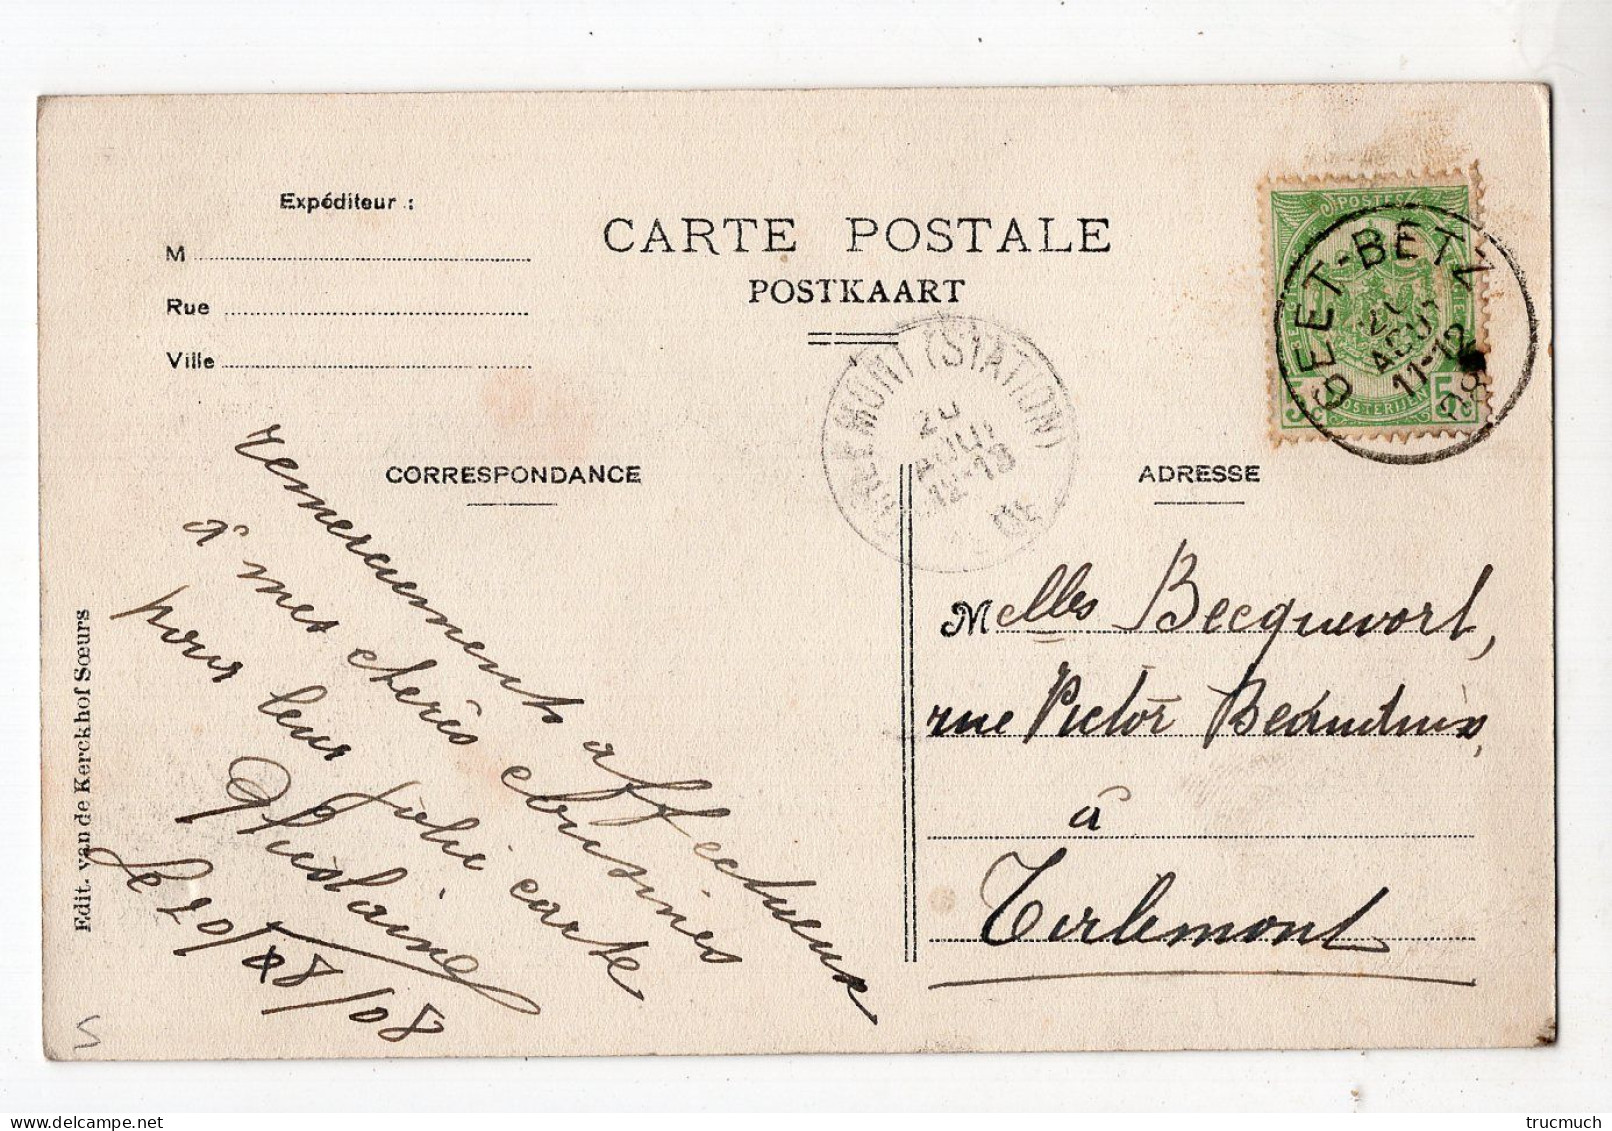 Expéditeur :
M
Rue
Ville
CARTE POSTALE
POSTKAART
POSTES
5 c
5 c
GEET-BETZ
20
AOUT
11-12
TIRLEMONT (STATION)
20
AOUT
12-13
CORRESPONDANCE
remerciements affectueux
à mes chères cousines
pour leur jolie carte
Ghislaine
le 20/8/08
ADRESSE
Melles Becquevort,
rue Victor Beauduin,
à
Tirlemont
Edit. van de Kerckhof Sœurs
trucmuch